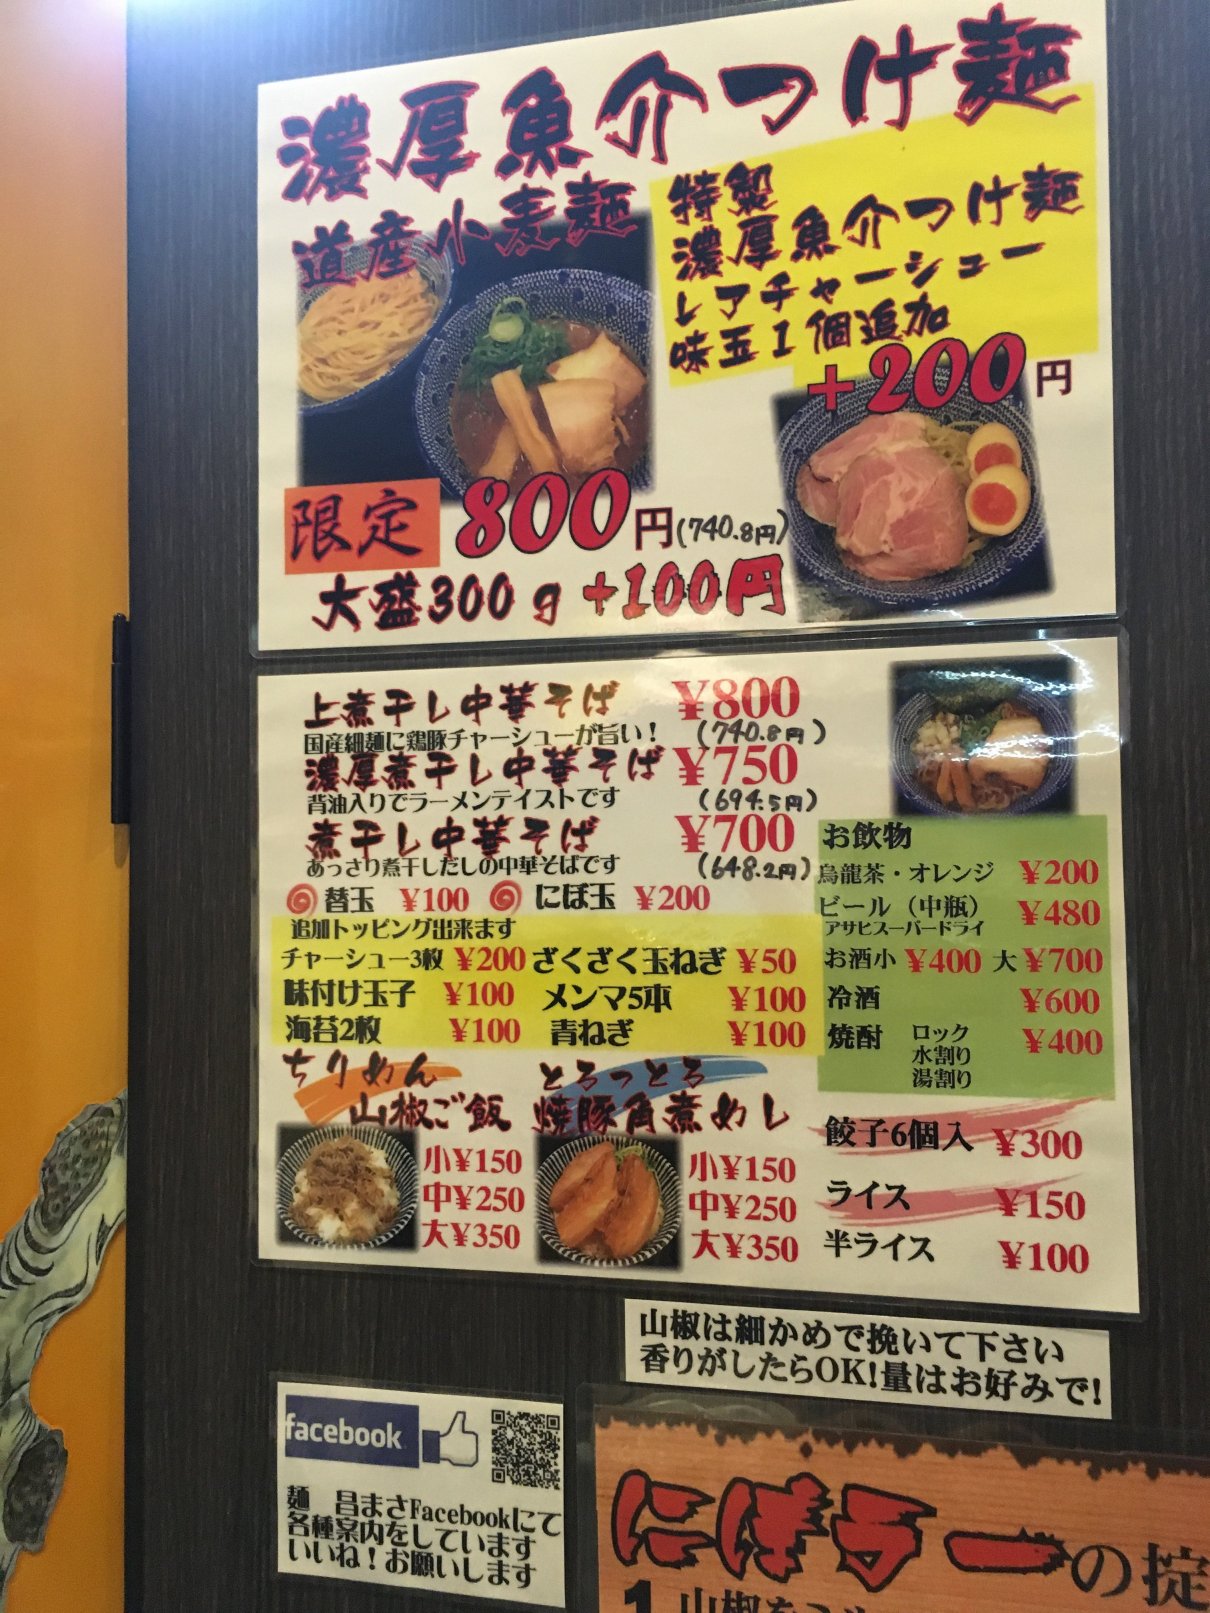 濃厚魚介つけ麺
道産小麦麺
特製
濃厚魚介つけ麺
レアチャーシュー
味玉1個追加
+200円
限定 800円(740.8円)
大盛300g +100円
上煮干し中華そば ¥800
国産細麺に鶏豚チャーシューが旨い! (740.8円)
濃厚煮干し中華そば ¥750
背油入りでラーメンテイストです (694.5円)
煮干し中華そば ¥700
あっさり煮干しだしの中華そばです (648.2円)
替玉 ¥100 にぼ玉 ¥200
追加トッピング出来ます
チャーシュー3枚 ¥200 ざくざく玉ねぎ ¥50
味付け玉子 ¥100 メンマ5本 ¥100
海苔2枚 ¥100 青ねぎ ¥100
お飲物
烏龍茶・オレンジ ¥200
ビール(中瓶) ¥480
アサヒスーパードライ
お酒小 ¥400 大 ¥700
冷酒 ¥600
焼酎 ロック ¥400
水割り
湯割り
ちりめん
山椒ご飯
小¥150
中¥250
大¥350
とろっとろ
焼豚角煮めし
小¥150
中¥250
大¥350
餃子6個入 ¥300
ライス ¥150
半ライス ¥100
山椒は細かめで挽いて下さい
香りがしたらOK!量はお好みで!
facebook
麺 昌まさFacebookにて
各種案内をしています
いいね!お願いします
にぼラーの掟
1 山椒を